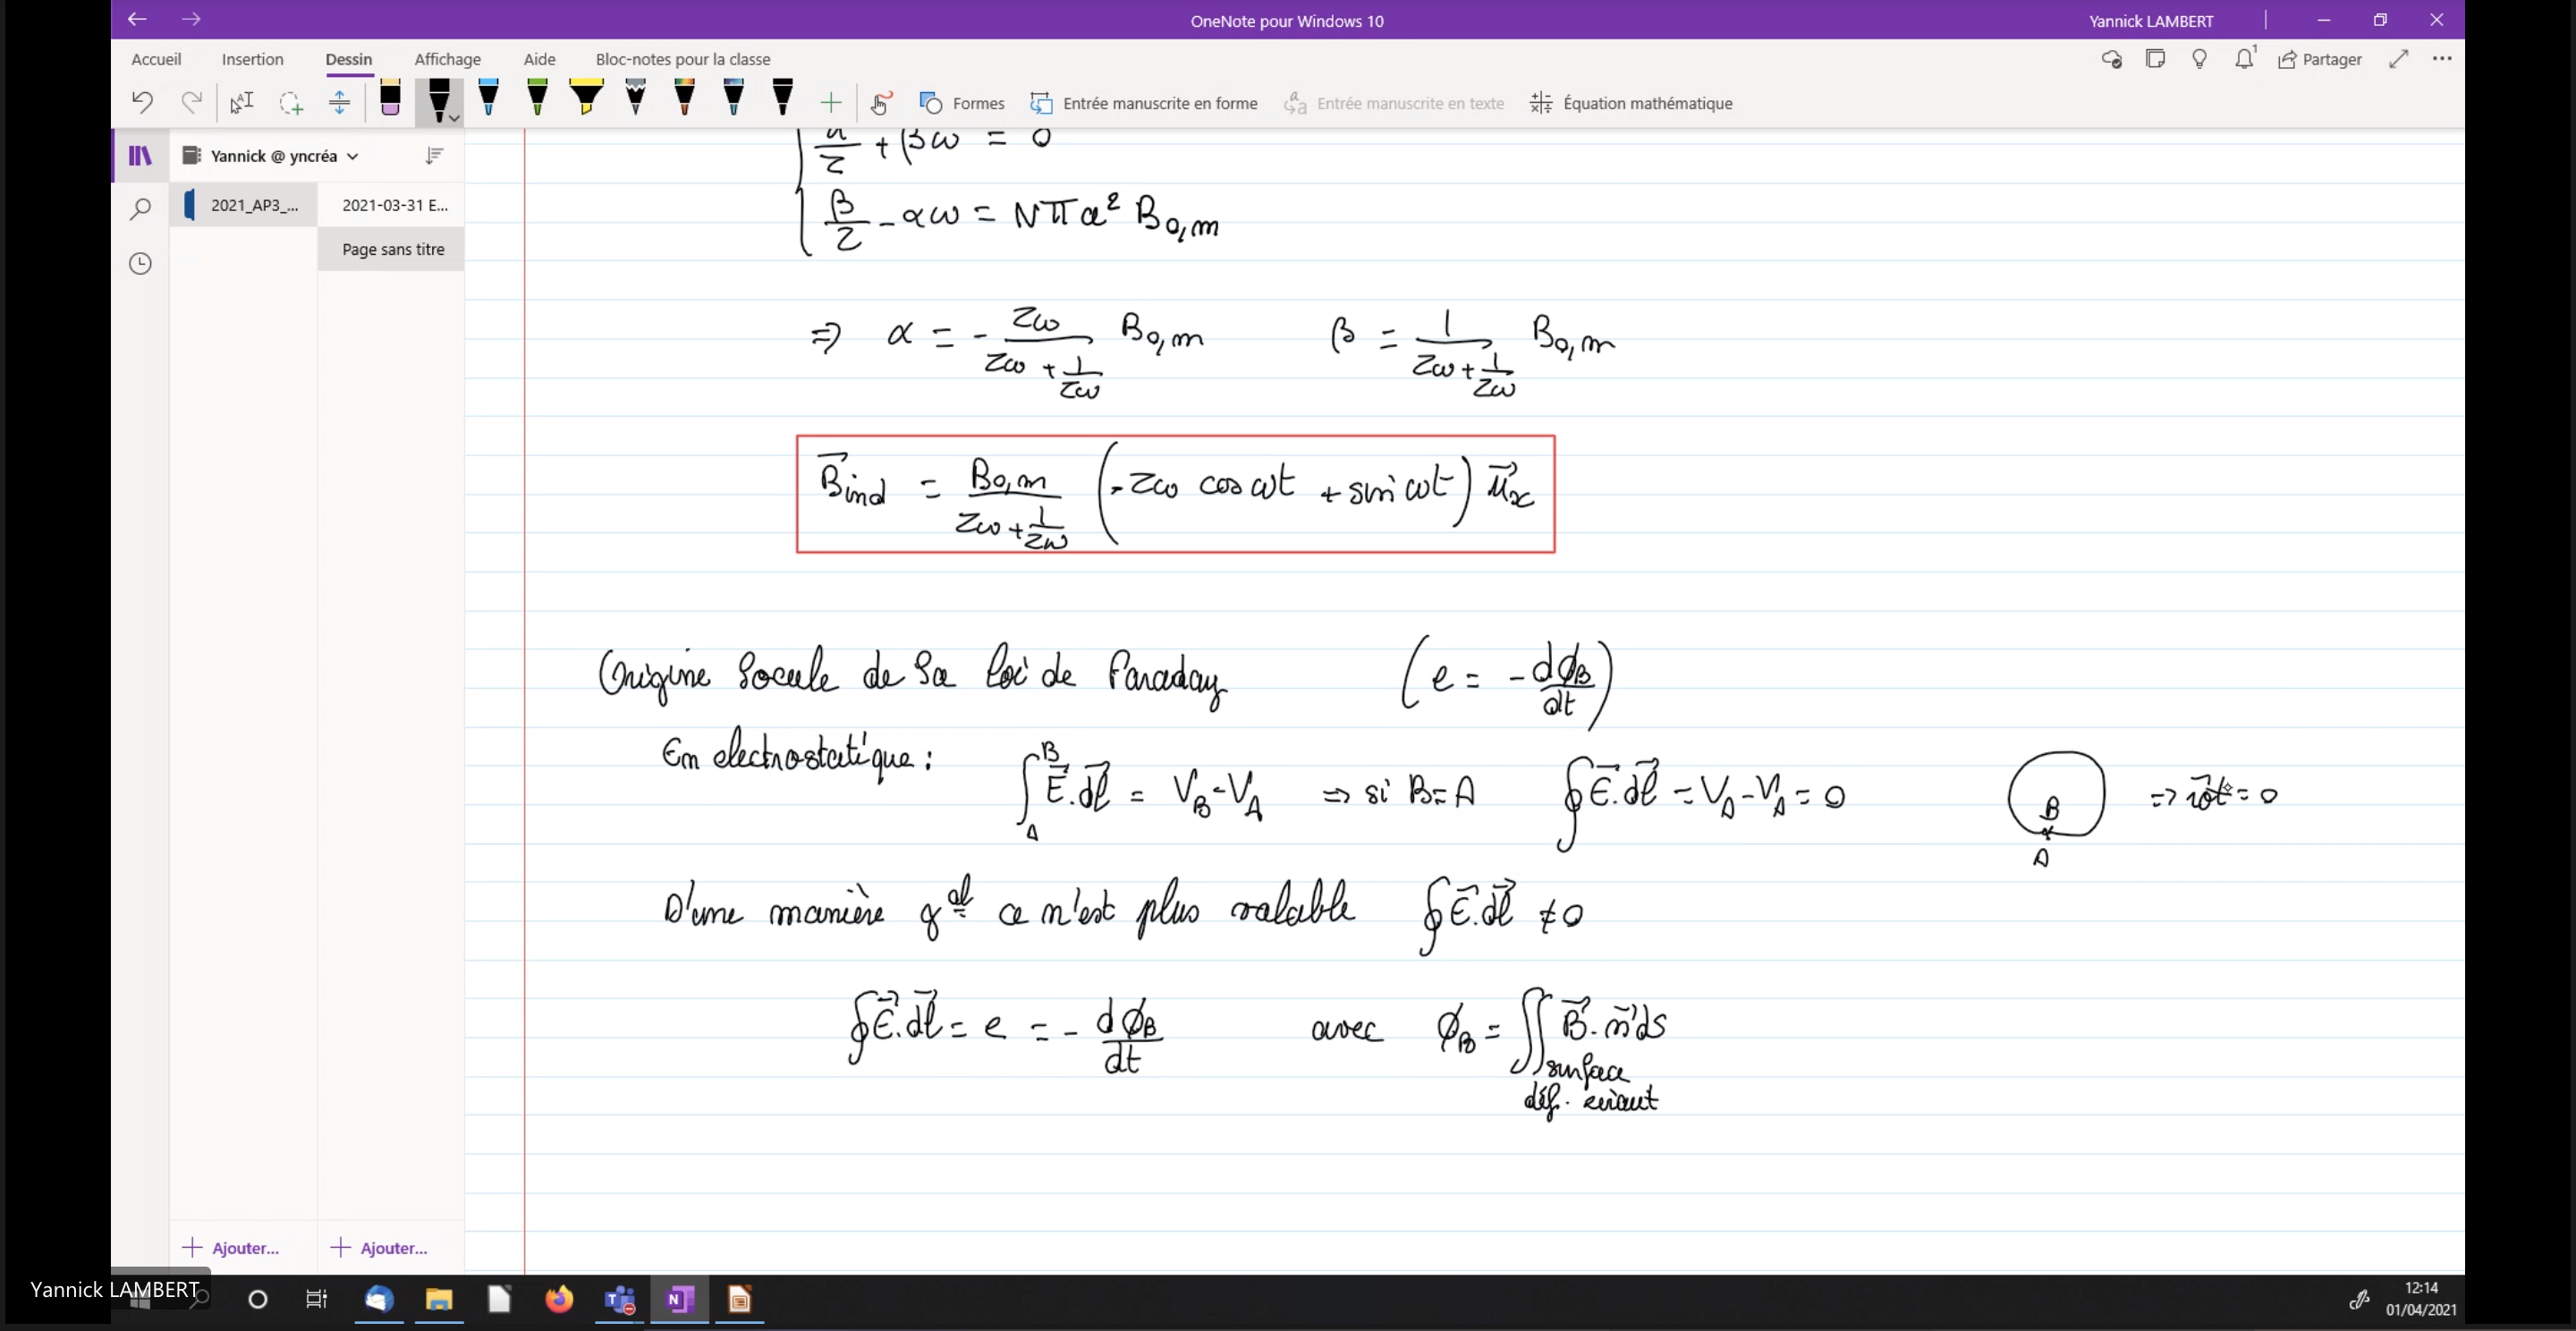 OneNote pour Windows 10
Yannick LAMBERT
Accueil Insertion Dessin Affichage Aide Bloc-notes pour la classe
Partager
Formes Entrée manuscrite en forme Entrée manuscrite en texte Équation mathématique
Yannick @ yncréa
2021_AP3_...
2021-03-31 E...
Page sans titre
α/τ + βω = 0
β/τ - αω = Nπa² B₀,m
⇒ α = - τω/(τω + 1/τω) B₀,m β = 1/(τω + 1/τω) B₀,m
B⃗ind = B₀,m/(τω + 1/τω) (-τω cos ωt + sin ωt) u⃗x
Origine locale de la loi de Faraday (e = - dϕB/dt)
En electrostatique : ∫_A^B E⃗.dl⃗ = V_B - V_A ⇒ si B=A ∮E⃗.dl⃗ = V_A - V_A = 0 B A ⇒ rot⃗ = 0
D'une manière gal ce n'est plus valable ∮E⃗.dl⃗ ≠ 0
∮E⃗.dl⃗ = e = - dϕB/dt avec ϕB = ∬ B⃗.n⃗ ds
surface
déf. circuit
Ajouter... Ajouter...
Yannick LAMBERT
12:14
01/04/2021